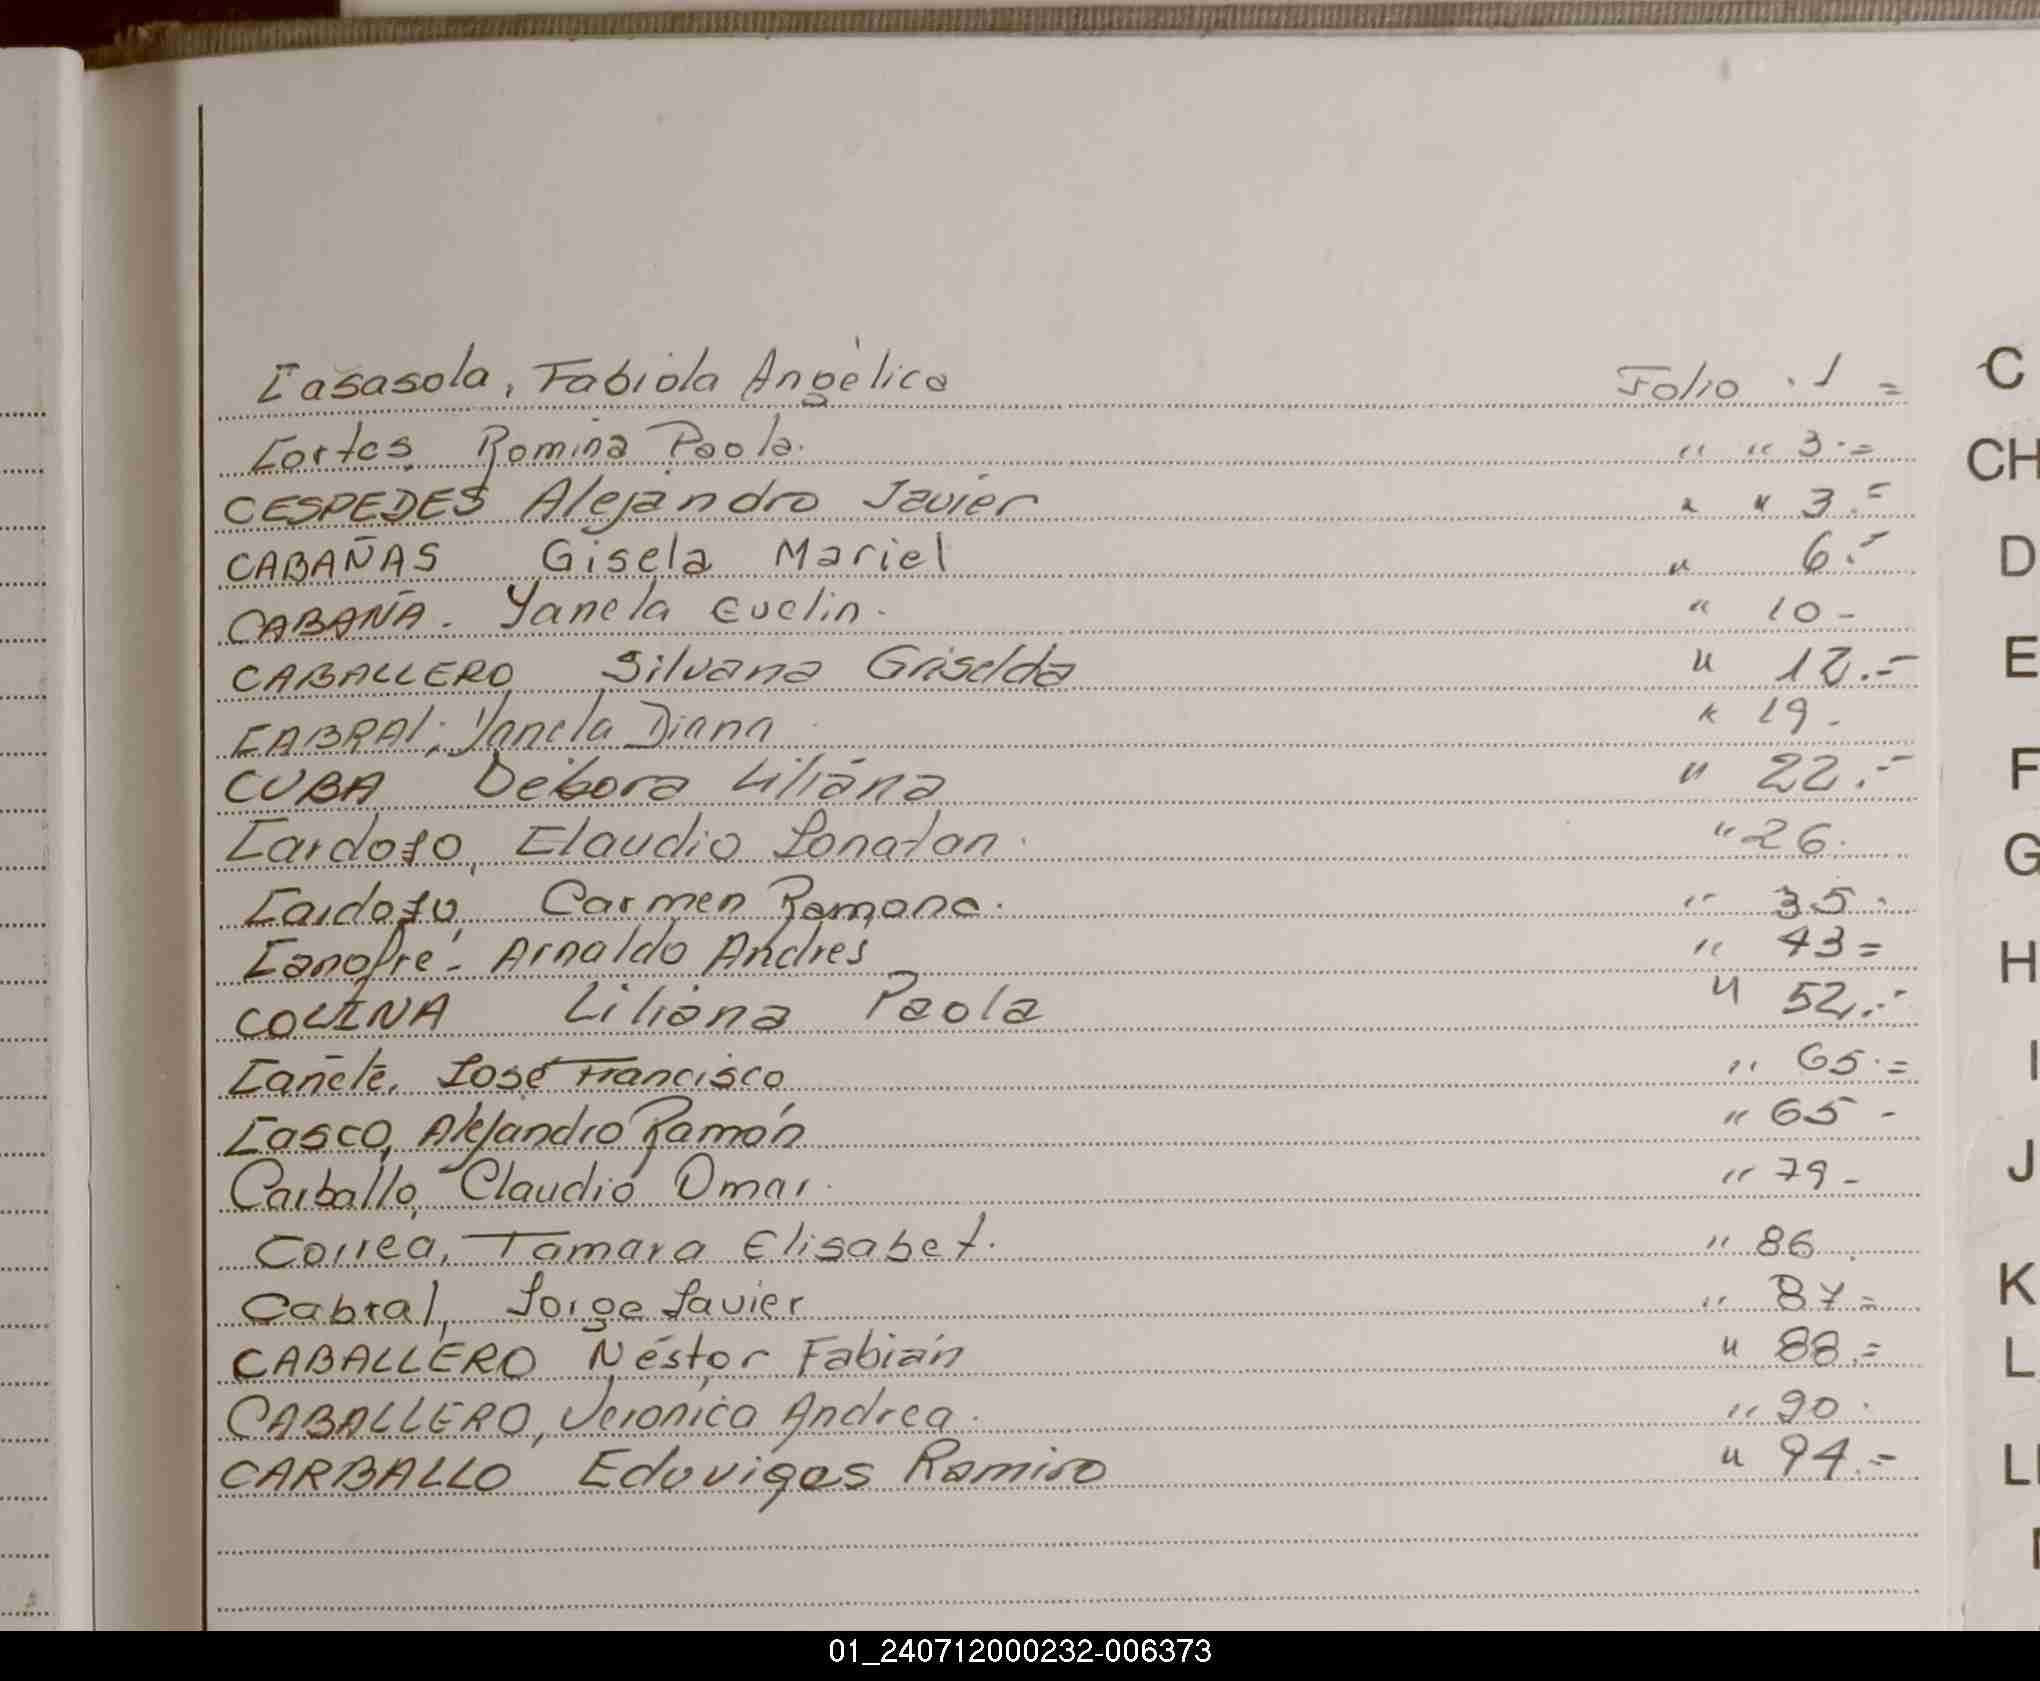 Casasola, Fabiola Angélica Folio . 1 =
Cortes, Romina Paola. " " 3.=
CESPEDES Alejandro Javier " " 3.=
CABAÑAS Gisela Mariel " 6.-
CABAÑA. Yanela Evelin. " 10-
CABALLERO Silvana Griselda " 12.-
CABRAL; Yanela Diana " 19.
CUBA Débora Liliana " 22.-
Cardozo, Claudio Jonatan. " 26.
Cardozo, Carmen Ramona. " 35.
Canofre'- Arnaldo Andrés " 43=
COLINA Liliana Paola " 52.-
Cañete, José Francisco " 65.=
Casco, Alejandro Ramón " 65-
Carballo, Claudio Omar. " 79-
Correa, Tamara Elisabet. " 86.
Cabral, Jorge Javier " 87=
CABALLERO Néstor Fabián " 88.=
CABALLERO, Veronica Andrea. " 90.
CARBALLO Eduviges Ramiro " 94.-
C
CH
D
E
F
G
H
I
J
K
L
01_240712000232-006373